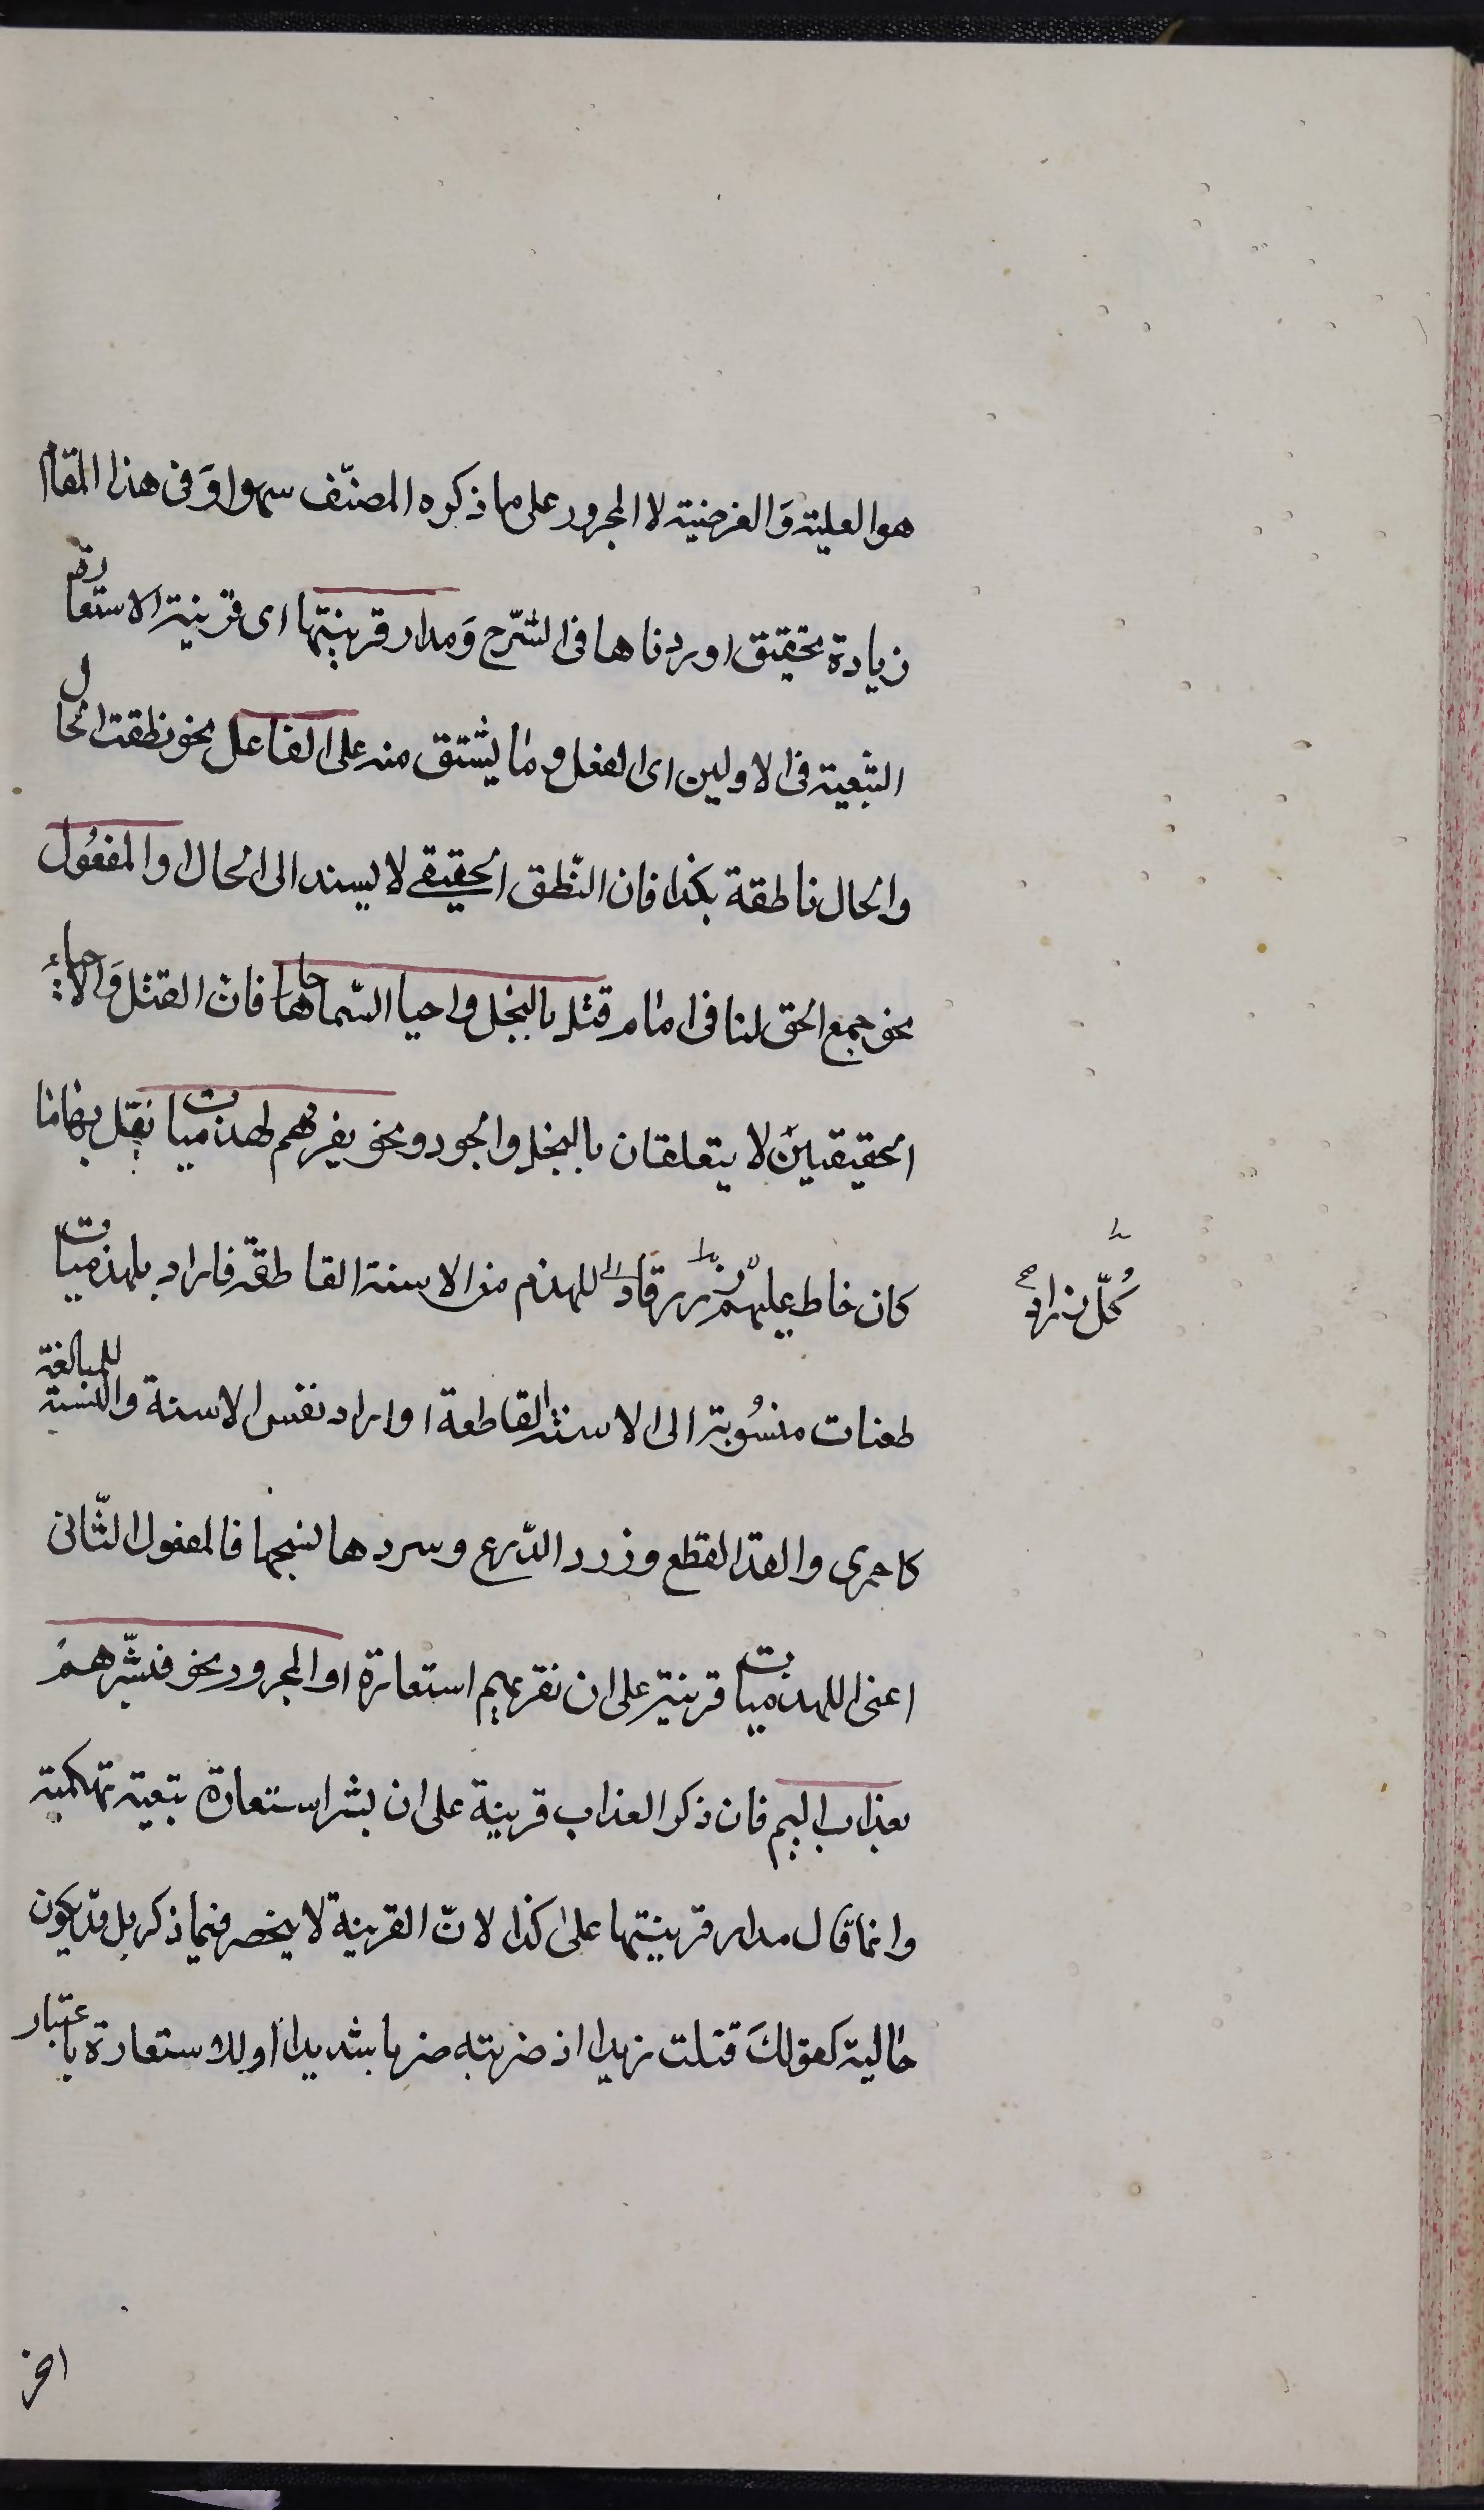 هو العلية وَالغرضية لا المجرور على ما ذكره المصنّف سهوا وَفى هذا المقام
زيادة تحقيق اوردناها فى الشّرح وَمدار قرينتها اى قرينة الاستعارة
التبعية فى الاولين اى الفعل وما يشتق منه على الفاعل نحو نطقت الحال
والحال ناطقة بكذا فان النّطق الحقيقى لا يسند الى الحال او المفعُول
نحو جمع الحق لنا فى امام قتل البخل واحيا السّماحا فان القتل وَالاحياء
الحقيقيين لا يتعلقان بالبخل والجود ونحو يقريهم لهذميات نقد بها ما
كان خاط عليهم زراد اللهذم من الاسنة القاطعة فاراد بلهذميات
طعنات منسُوبة الى الاسنة القاطعة او اراد نفس الاسنة والنسبة للمبالغة
كاحمرى والقد القطع وزرد الدّرع وسردها نسجها فالمفعول الثّانى
اعنى اللهذميات قرينة على ان نقريهم استعارة او المجرور نحو فبشّرهم
بعذاب اليم فان ذكر العذاب قرينة على ان بشر استعارة تبعية تهكمية
وانما قال مدار قرينتها على كذا لانّ القرينة لا ينحصر فيما ذكر بل قد يكون
حالية كقولكَ قتلت زيدا اذ ضربته ضربا شديدا او الاستعارة باعتبار
كُلّ زراد
اخر